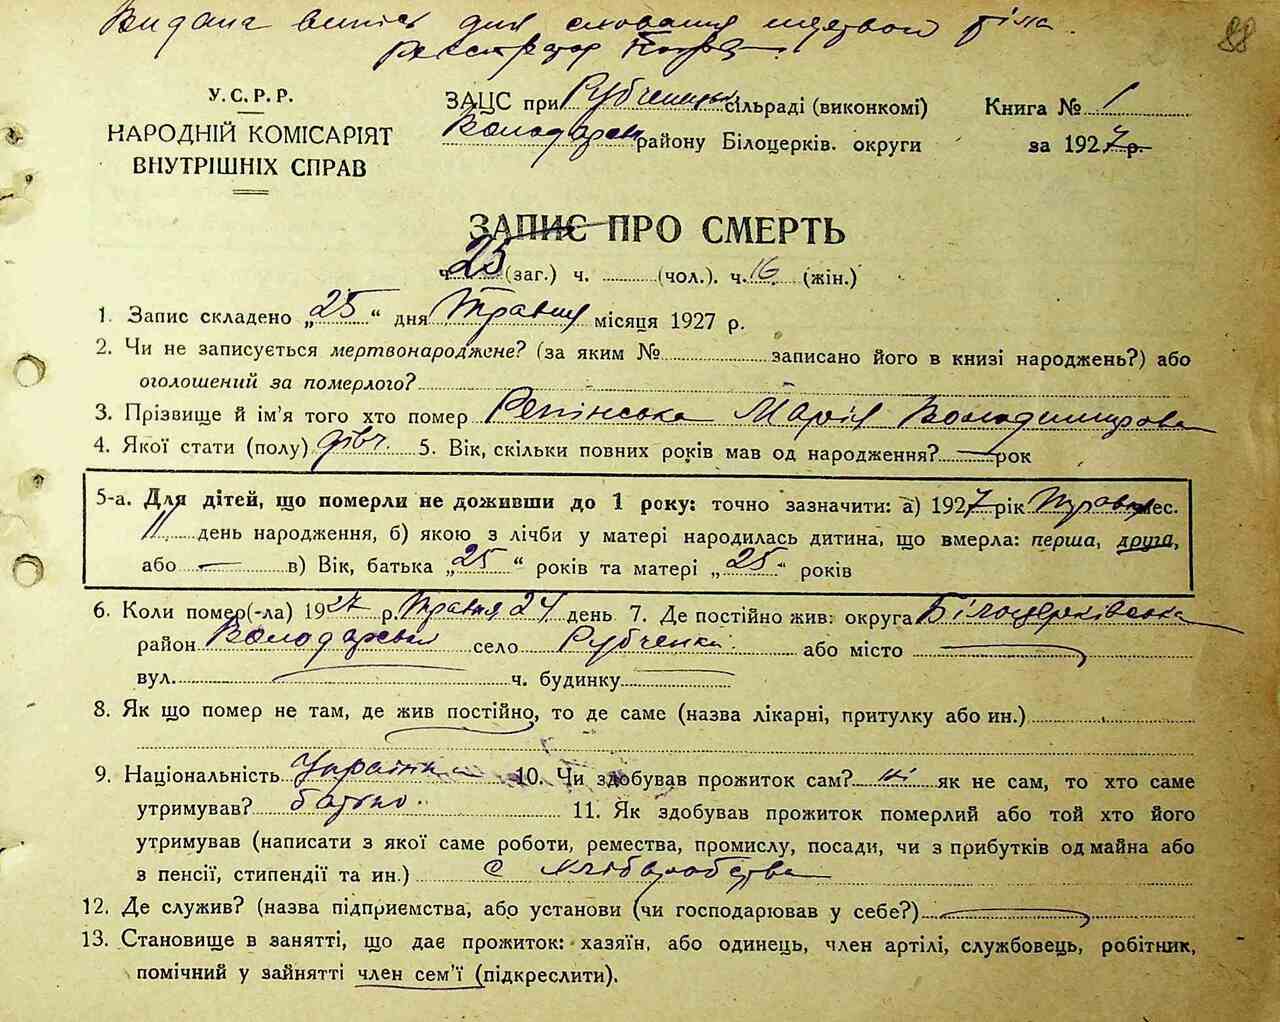 Видано випись для сховання мертвого тіла.
Реєстратор
88
У. С. Р. Р.
НАРОДНІЙ КОМІСАРІЯТ
ВНУТРІШНІХ СПРАВ
ЗАЦС при Рубченській сільраді (виконкомі)
Володарськ району Білоцерків. округи
Книга № 1
за 1927 р.
ЗАПИС ПРО СМЕРТЬ
ч. 25 (заг.) ч. (чол.). ч. 16 (жін.)
1. Запис складено „25“ дня Травня місяця 1927 р.
2. Чи не записується мертвонароджене? (за яким № записано його в книзі народжень?) або
оголошений за померлого?
3. Прізвище й ім'я того хто помер Репінська Марія Володимирова
4. Якої стати (полу) дівч. 5. Вік, скільки повних років мав од народження? — рок
5-а. Для дітей, що померли не доживши до 1 року: точно зазначити: а) 1927 рік Травня мес.
11 день народження, б) якою з лічби у матері народилась дитина, що вмерла: перша, друга,
або — в) Вік, батька „25“ років та матері „25“ років
6. Коли помер(-ла) 1927 р. Травня 24 день 7. Де постійно жив: округа Білоцерківська
район Володарськи село Рубченки. або місто —
вул. — ч. будинку —
8. Як що помер не там, де жив постійно, то де саме (назва лікарні, притулку або ин.)
9. Національність Українка 10. Чи здобував прожиток сам? ні як не сам, то хто саме
утримував? батько. 11. Як здобував прожиток померлий або той хто його
утримував (написати з якої саме роботи, ремества, промислу, посади, чи з прибутків од майна або
з пенсії, стипендії та ин.) с хліборобства
12. Де служив? (назва підприємства, або установи (чи господарював у себе?) —
13. Становище в занятті, що дає прожиток: хазяїн, або одинець, член артілі, службовець, робітник,
помічний у зайнятті член сем'ї (підкреслити).